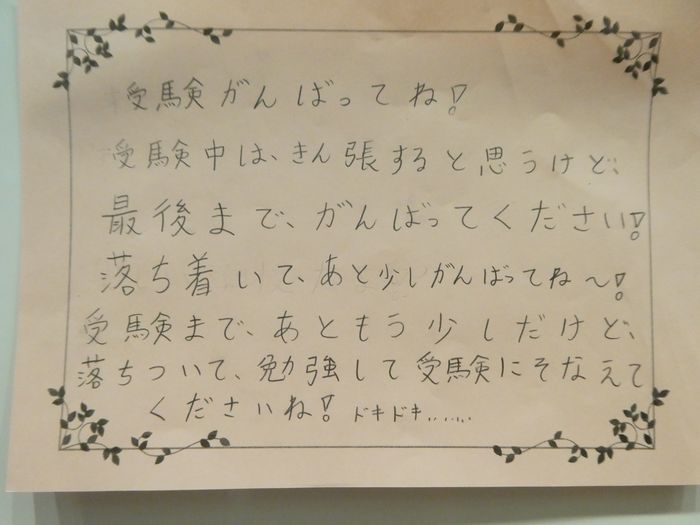 受験がんばってね!
受験中は、きん張すると思うけど、
最後まで、がんばってください!
落ち着いて、あと少しがんばってね〜!
受験まで、あともう少しだけど、
落ちついて、勉強して受験にそなえて
くださいね! ドキドキ......